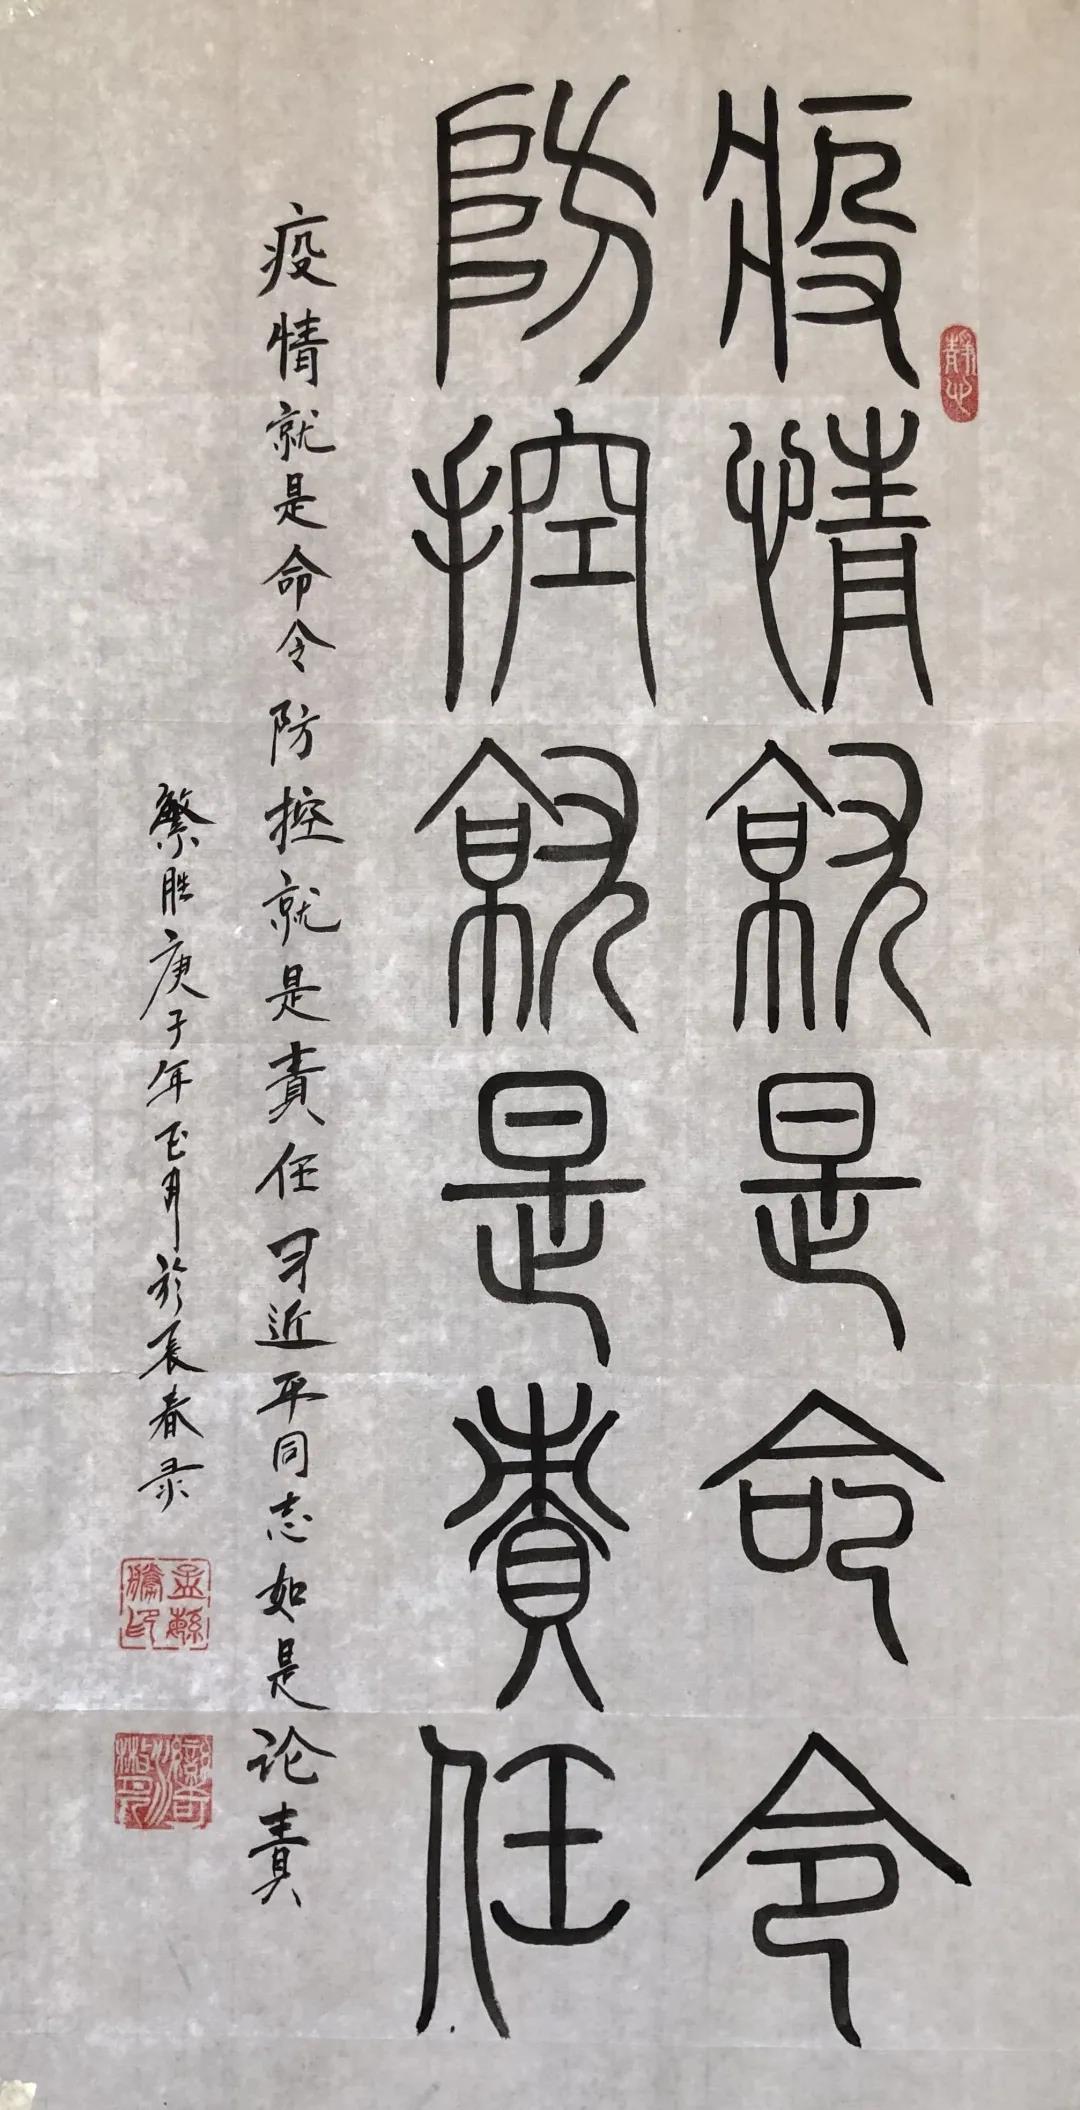 疫情就是命令
防控就是責任
疫情就是命令防控就是責任习近平同志如是论責
繁胜庚子年正月於長春录
静心